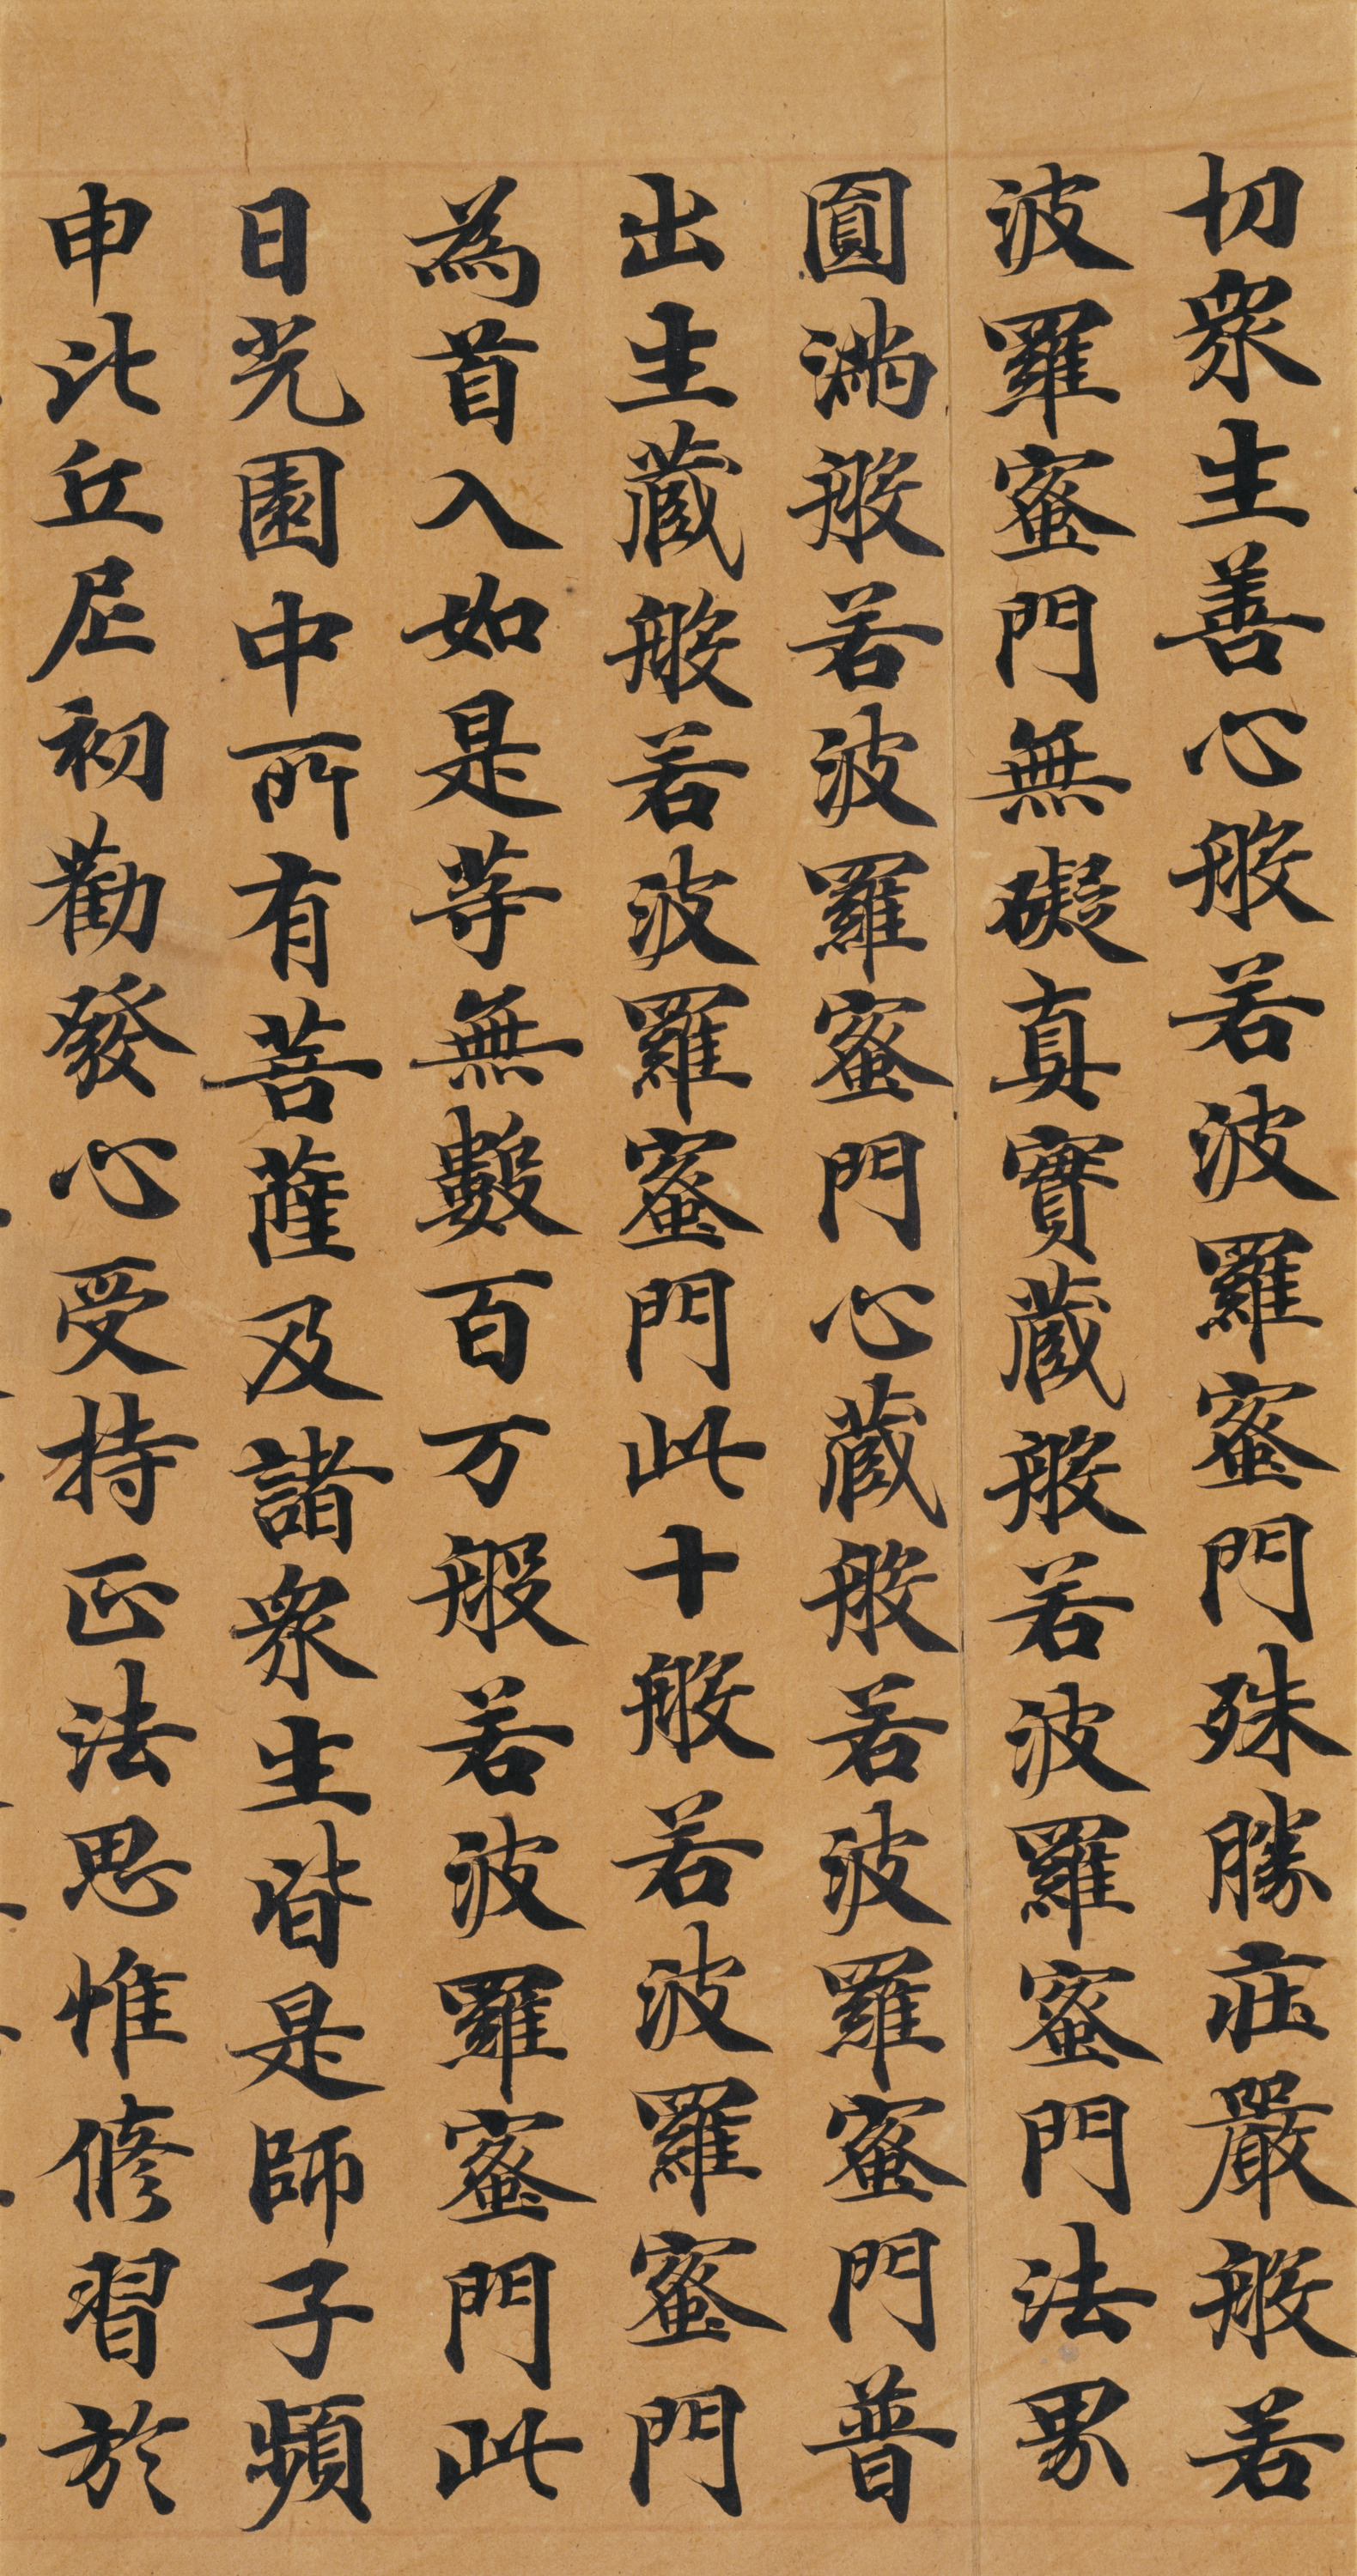 切衆生善心般若波羅蜜門殊勝庄嚴般若
波羅蜜門無礙真實蔵般若波羅蜜門法界
圓滿般若波羅蜜門心蔵般若波羅蜜門普
出生蔵般若波羅蜜門此十般若波羅蜜門
為首入如是等無數百万般若波羅蜜門此
日光園中所有菩薩及諸衆生皆是師子頻
申比丘尼初勸發心受持正法思惟修習於